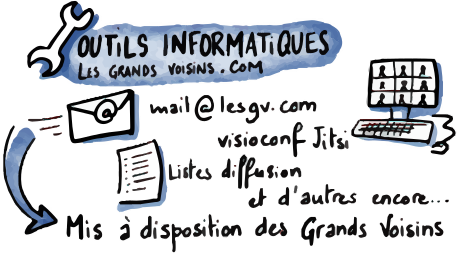 OUTiLS INFORMATiQUES
LES GRANDS VOISINS.COM
@
mail@lesgv.com
visioconf Jitsi
Listes diffusion
et d'autres encore...
Mis à disposition des Grands Voisins